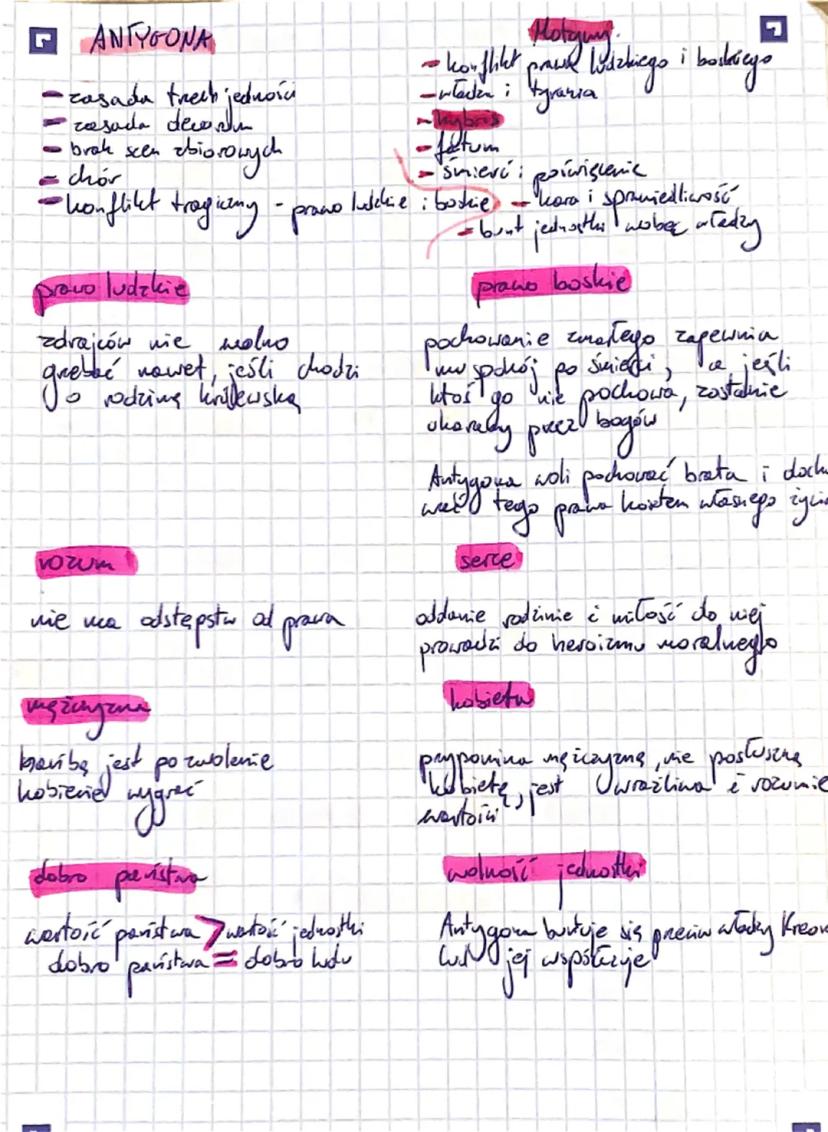 ANTYGONA
- zasada trzech jedności
- zasada decorum
- brak scen zbiorowych
- chór
- konflikt tragiczny - prawo ludzkie i boskie
Motywy
- konflikt prawa ludzkiego i boskiego
- władza i tyrania
- hybris
- fatum
- śmierć i poświęcenie
- kara i sprawiedliwość
- bunt jednostki wobec władzy
prawo ludzkie
zdrajców nie wolno
grzebać nawet, jeśli chodzi
o rodzinę królewską
prawo boskie
pochowanie zmarłego zapewnia
mu spokój po śmierci, a jeśli
ktoś go nie pochowa, zostanie
ukarany przez bogów
Antygona woli pochować brata i docho
wać tego prawa kosztem własnego życia
rozum
nie ma odstępstw od prawa
serce
oddanie rodzinie i miłość do niej
prowadzi do heroizmu moralnego
mężczyzna
hańbą jest pozwolenie
kobiecie wygrać
kobieta
przypomina mężczyznę, nie posłuszną
kobietę, jest wrażliwa i rozumie
wartości
dobro państwa
wartość państwa > wartość jednostki
dobro państwa = dobro ludu
wolność jednostki
Antygona buntuje się przeciw władzy Kreon
lud jej współczuje